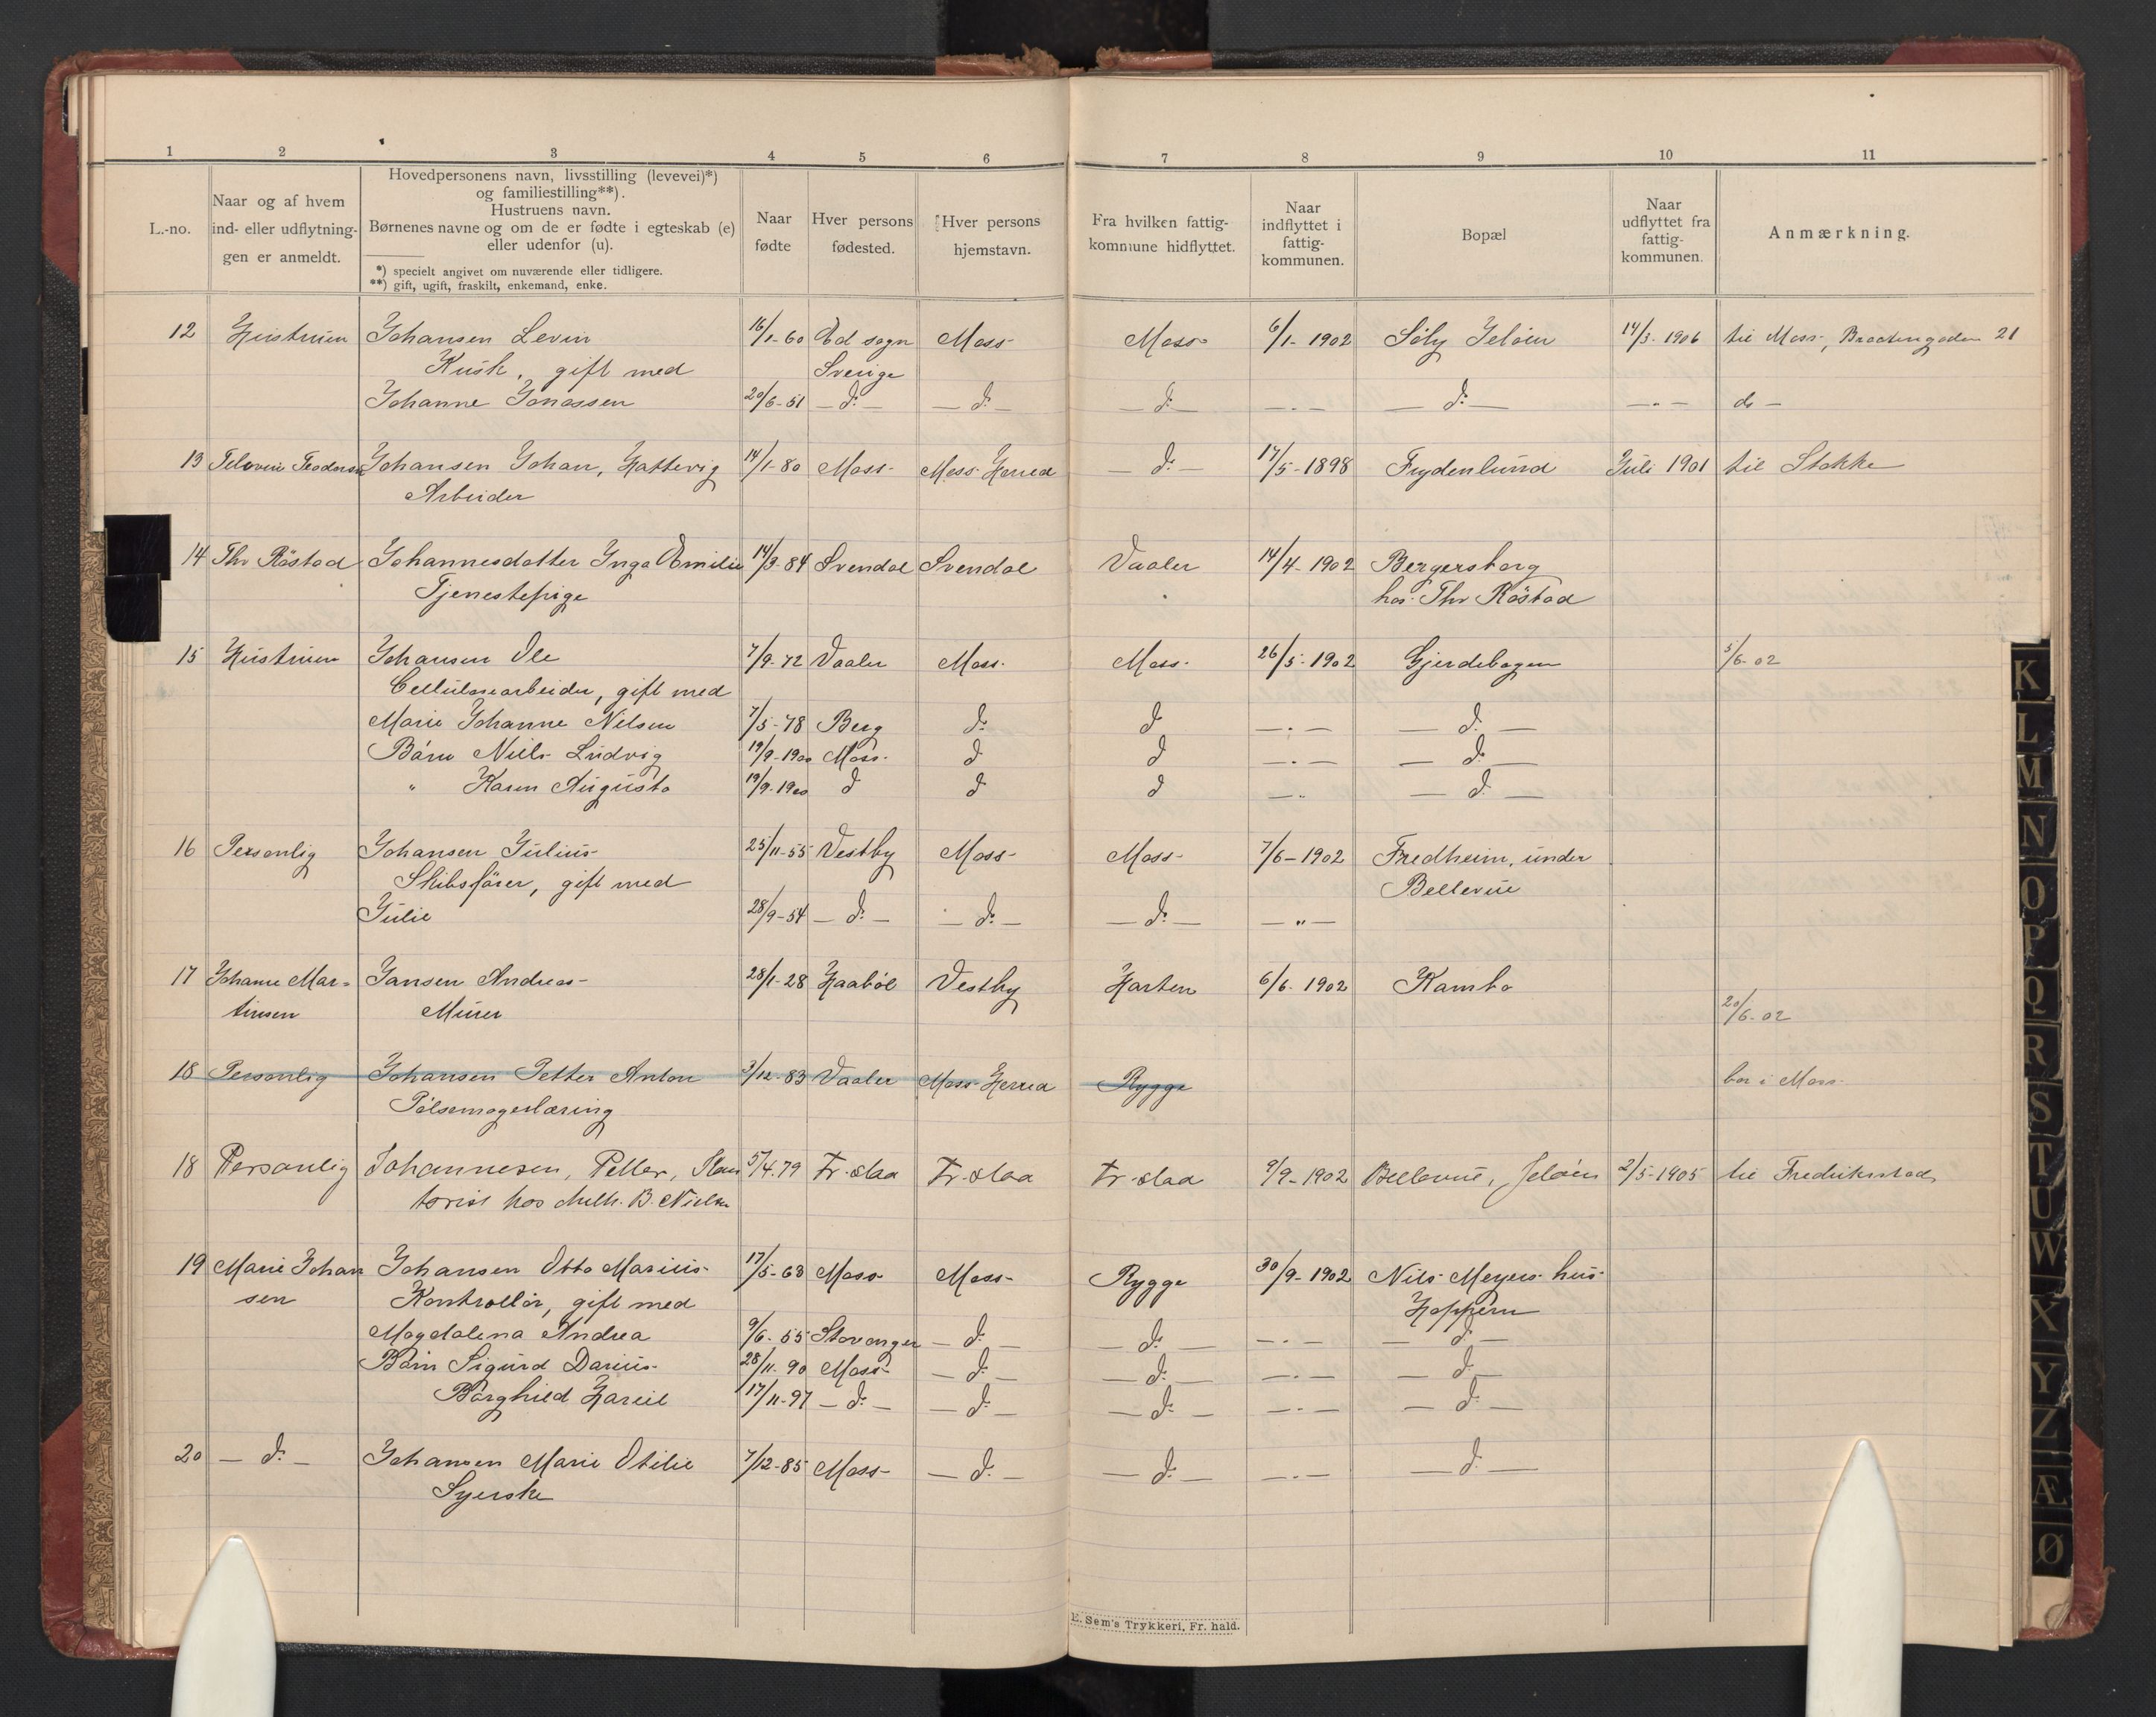 1 2 3 4 5 6 7 8 9 10 11
L.-no.
Naar og af hvem
ind- eller udflytnin-
gen er anmeldt.
Hovedpersonens navn, livsstilling (levevei)*)
og familiestilling**).
Hustruens navn.
Børnenes navne og om de er fødte i egteskab (e)
eller udenfor (u).
*) specielt angivet om nuværende eller tidligere.
**) gift, ugift, fraskilt, enkemand, enke.
Naar
fødte
Hver persons
fødested.
Hver persons
hjemstavn.
Fra hvilken fattig-
kommune hidflyttet.
Naar
indflyttet i
fattig-
kommunen.
Bopæl
Naar
udflyttet fra
fattig-
kommunen.
Anmærkning.
12 Hustruen Johansen Levin 16/1-60 Ed sogn Moss Moss 6/1-1902 Søly Jeløen 14/3-1906 til Moss, Braatengaden 21
Kusk, gift med Sverige
Johanne Jonassen 20/6-51 — d: — — d: — — d: — — . — — d: — — " — do —
13 Johansen Johan, Hattevig 14/1-80 Moss Moss Herred — d: — 17/5-1898 Frydenlund Juli 1901 til Stokke
Arbeider
14 Thv Råstad Johannesdatter Inga Emilie 14/3-84 Svendal Svendal Vaaler 14/4-1902 Bergersborg
Tjenestepige hos Thv Råstad
15 Hustruen Johansen Ole 7/9-72 Vaaler Moss Moss 26/5-1902 Gjerdebogen 5/6-02
Cellulosearbeider, gift med
Marie Johanne Nilsen 7/5-78 Berg d: d — . — — d: —
Børn Niels Ludvig 19/9-1900 Moss d d — . — — d: —
" Karen Augusta 19/9-1900 d d d — " — d —
16 Personlig Johansen Julius 25/11-55 Vestby Moss Moss 7/6-1902 Fredheim, under
Skibsfører, gift med Bellevue
Julie 28/9-54 — d: — — d: — — d: — — " —
17 Johanne Mar- Jansen Andreas 28/1-28 Haabøl Vestby Horten 6/6-1902 Kambo
tinsen Murer 20/6-02
18 Personlig Johansen Petter Anton 3/12-83 Vaaler Moss Herred Rygge bor i Moss
Pølsemagerlæring
18 Personlig Johannesen, Petter, Kon 5/4.79 Fr.stad Fr.stad Fr.stad 9/9-1902 Bellevue, Jeløen 2/5-1905 til Fredrikstad
torist hos Melk. B. Nielsen
19 Marie Johan Johansen Otto Marius 17/5-63 Moss Moss Rygge 30/9-1902 Nils Meyers hus
sen Kontrollør, gift med Hoppern
Magdalena Andrea 9/6-55 Stavanger — d: — — d: — — . — — d: —
Børn Sigurd Darius 28/11-90 Moss — d: — — d: — — . — — d: —
Borghild Hareie 17/11-97 — d: — — d: — — d: — — . — — d: —
20 — d: — Johansen Marie Otilie 7/12-85 Moss — d: — — d: — — . — — d: —
Syerske
E. Sem's Trykkeri, Fr. hald.
K
L
M
N
O
P
Q
R
S
T
U
W
X
Y
Z
Æ
Ø